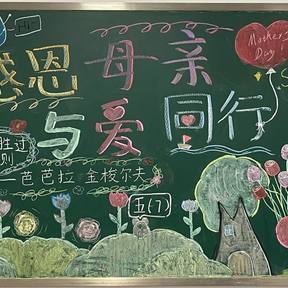 Hi~
感恩母亲
Mother's
Day!
与爱同行
胜过
则
芭芭拉 金梭尔夫
五(7)